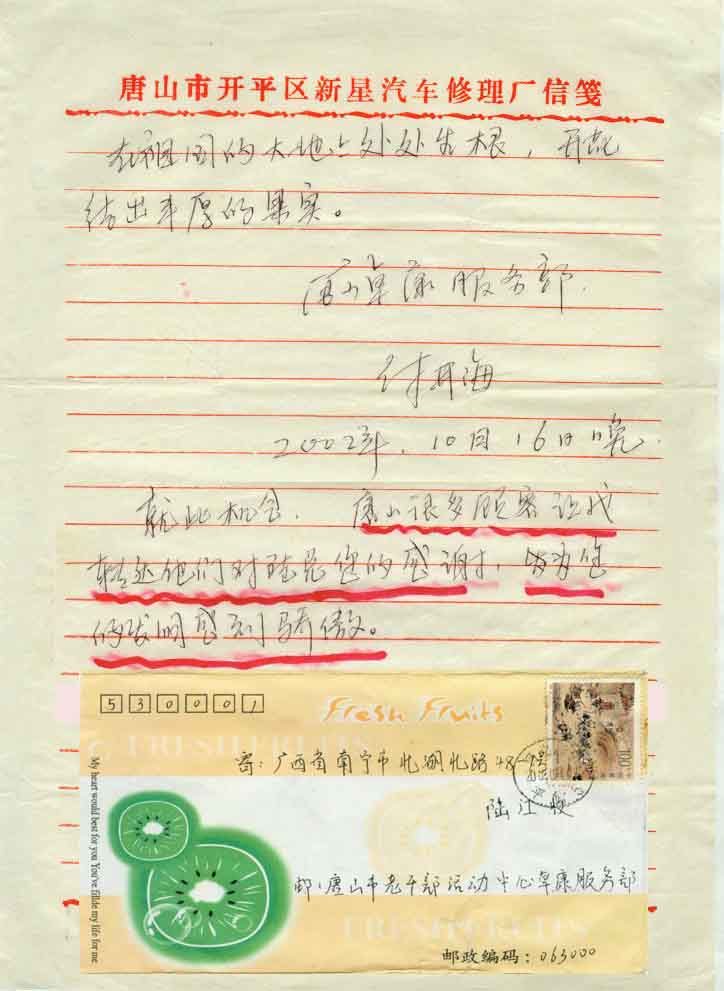 唐山市开平区新星汽车修理厂信笺
在祖国的大地上处处生根，开花
结出丰厚的果实。
唐山卓康服务部.
海
2002年.10月16日晚.
就此机会.唐山很多顾客让我
转达他们对陆总您的感谢，
的发明感到骄傲。
530001
Fresh Fruits
FRESH FRUITS
寄:广西省南宁市北湖北路48-
陆江
邮:唐山市老干部活动中心卓康服务部
邮政编码:063000
100
My heart would best for you You've fillde my life for me